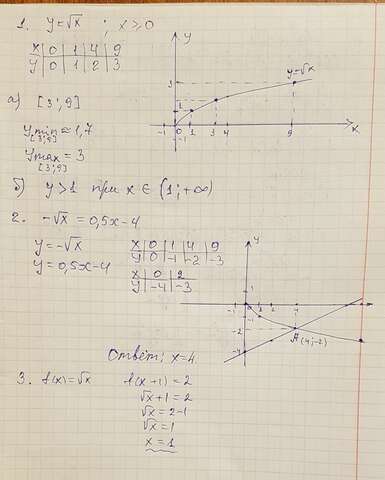 1. y=√x ; x≥0
x 0 1 4 9
y 0 1 2 3
y
3
y=√x
1
-1 0 1 3 4 9 x
-1
а) [3; 9]
ymin ≈ 1,7
[3; 9]
ymax = 3
[3; 9]
б) y>1 при x ∈ (1; +∞)
2. -√x = 0,5x-4
y=-√x
y=0,5x-4
x 0 1 4 9
y 0 -1 -2 -3
x 0 2
y -4 -3
y
1
-1 0 1 2 4
-1
-2
A (4; -2)
-4
Ответ: x=4
3. f(x)=√x f(x+1) = 2
√x+1 = 2
√x = 2-1
√x = 1
x = 1